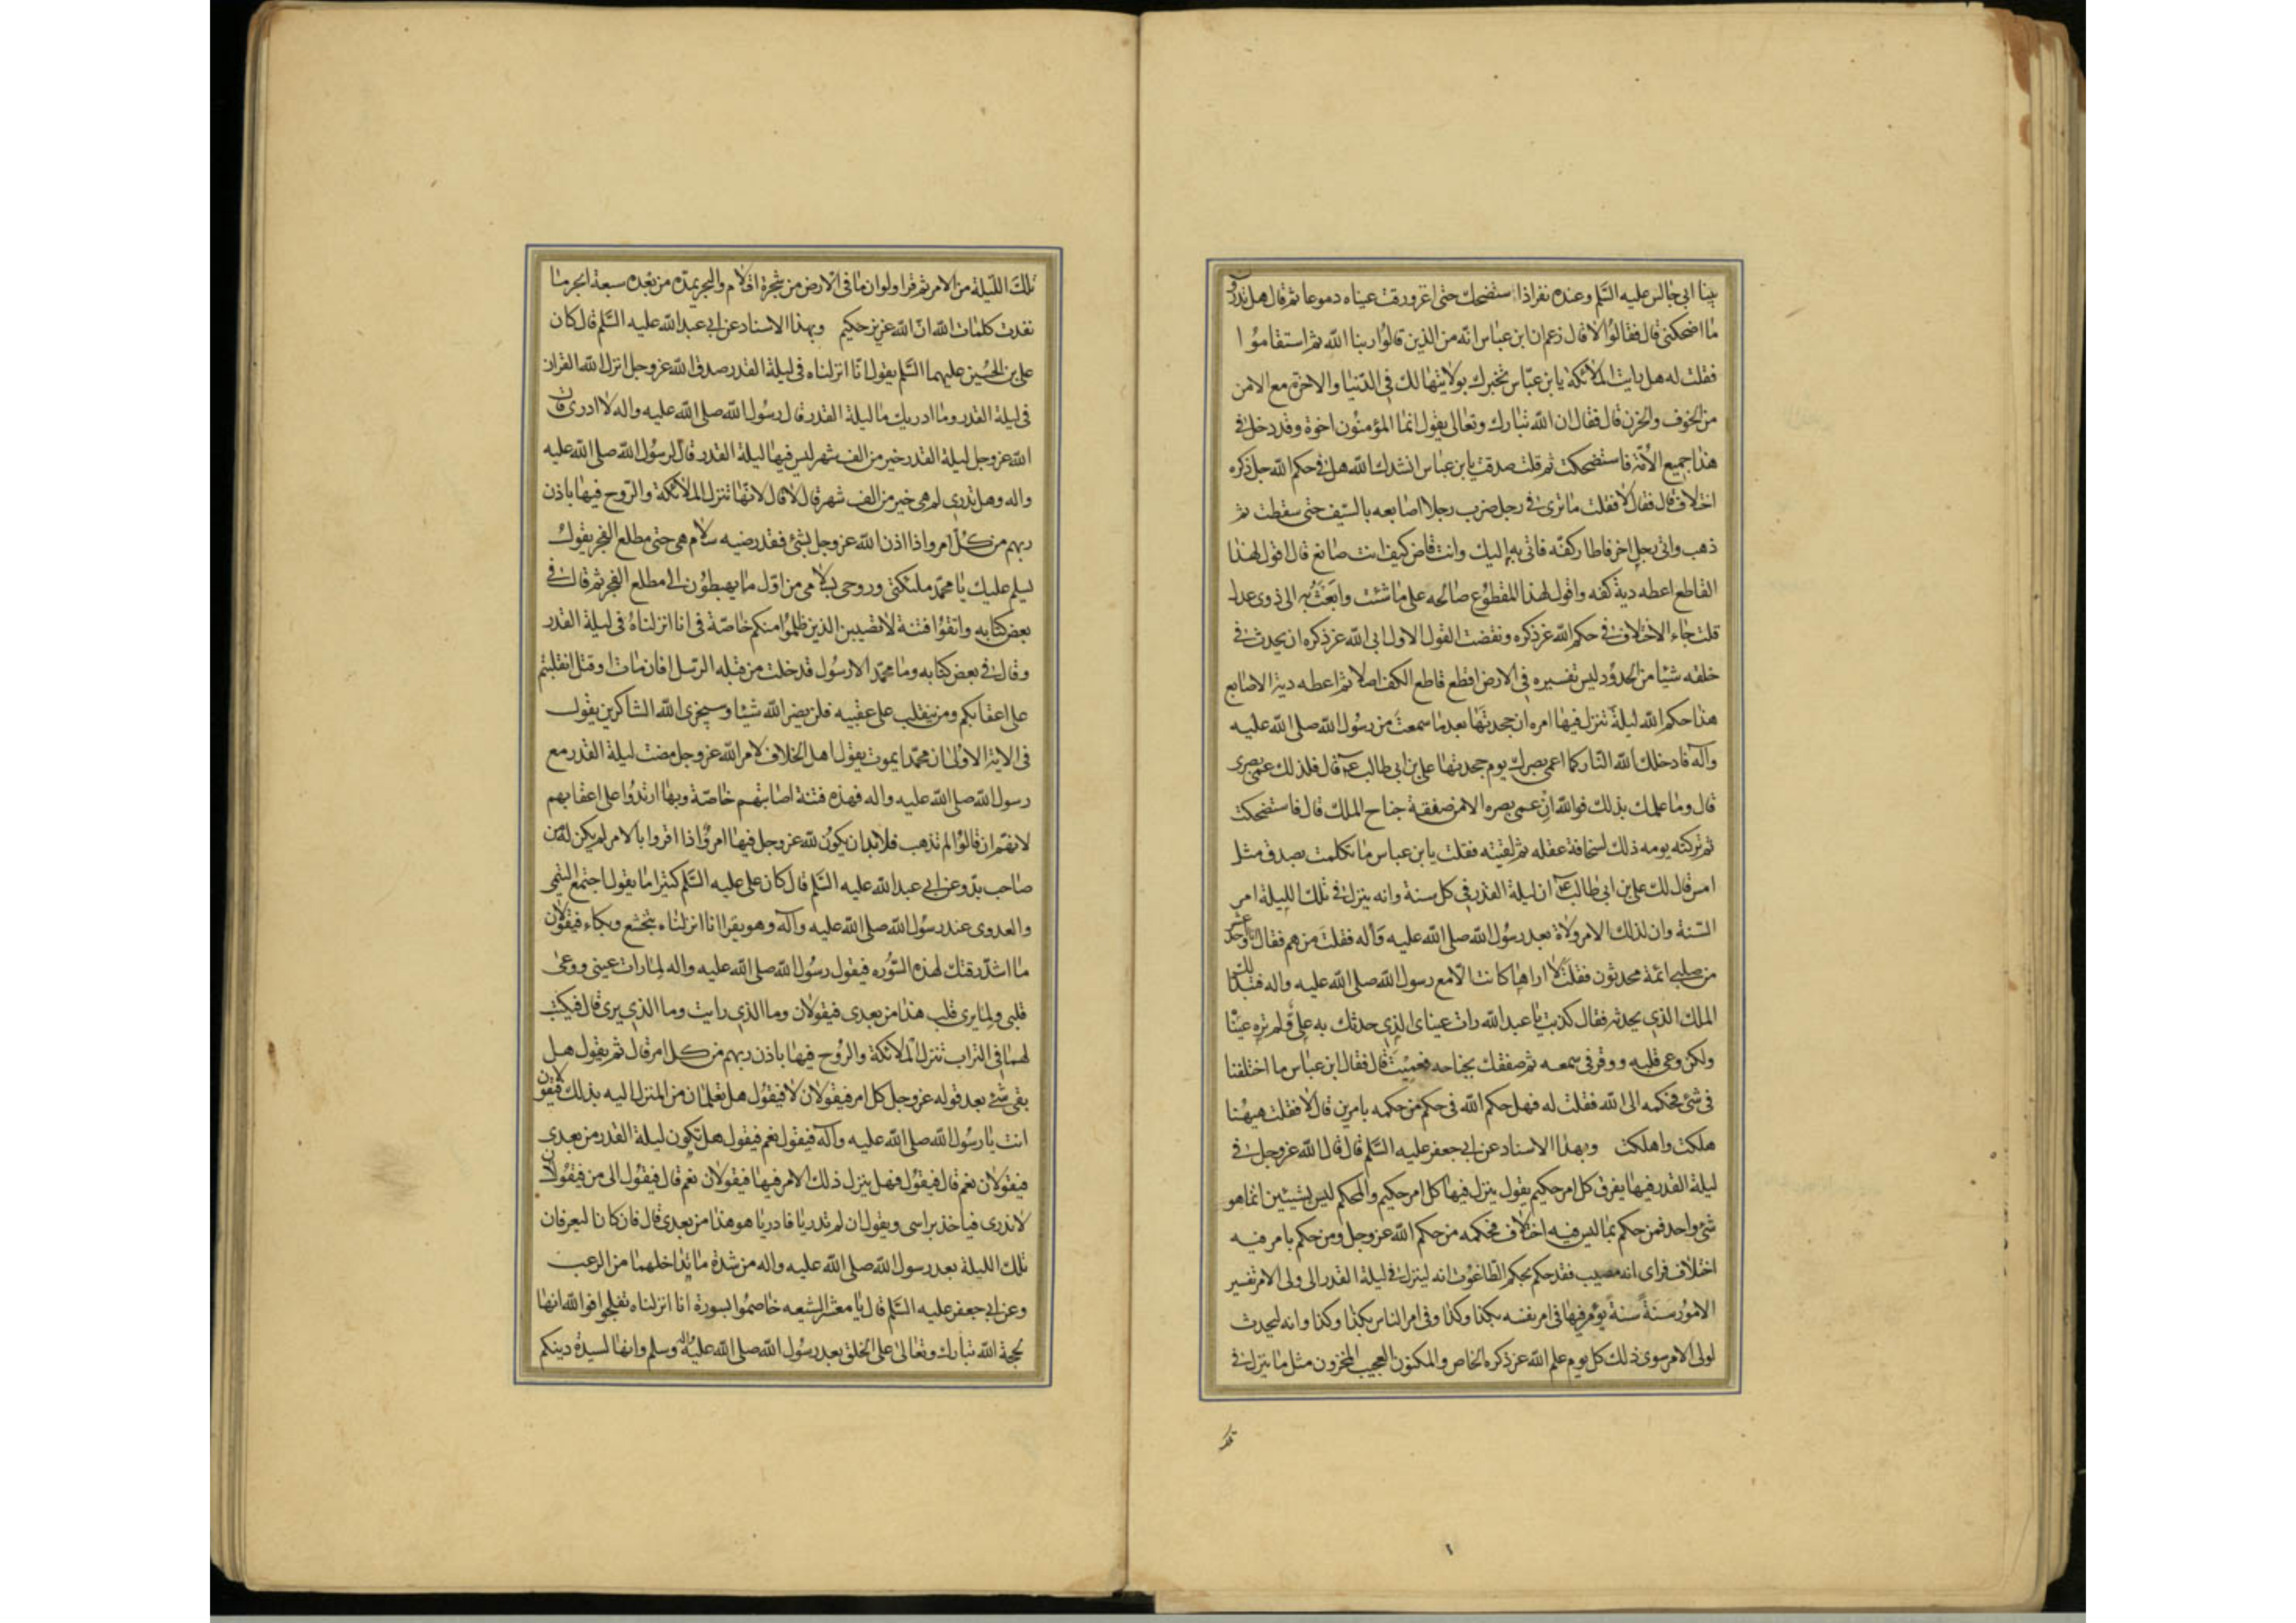 بينا ابي جالس عليه السّلم وعنده نفر اذا استضحك حتى اغرورقت عيناه دموعا ثم قال هل تدرون
ما اضحكنى قال فقالوا لا قال زعم ان ابن عباس انه من الذين قالوا ربنا الله ثم استقاموا
فقلت له هل رايت الملائكة يا بن عبّاس تخبرك بولايتها لك في الدّنيا والاخرة مع الامن
من الخوف والحزن قال فقال ان الله تبارك وتعالى يقول انما المؤمنون اخوة وقد دخل في
هذا جميع الأمّة فاستضحكت ثم قلت صدقت يا بن عباس انشدك الله هل في حكم الله جل ذكره
اختلاف قال فقال لا فقلت ما ترى في رجل ضرب رجلا اصابعه بالسّيف حتى سقطت ثم
ذهب واتى رجل اخر فاطار كفّه فاتى به إليك وانت قاض كيف انت صانع قال اقول لهذا
القاطع اعطه دية كفه واقول لهذا المقطوع صالحه على ما شئت وابعث به الى ذوى عدل
قلت جاء الاختلاف في حكم الله عز ذكره ونقضت القول الاول ابى الله عز ذكره ان يحدث في
خلقه شيئا من الحدود ليس تفسيره في الارض اقطع قاطع الكف اصلا ثم اعطه دية الاصابع
هذا حكم الله ليلة تنزل فيها امره ان جحدتها بعد ما سمعت من رسول الله صلى الله عليه
وآله فادخلك الله النّار كما اعمى بصرك يوم جحدتها على بن ابى طالب ع قال فلذلك عمى بصرى
قال وما علمك بذلك فوالله ان عمى بصره الا من صفقة جناح الملك قال فاستضحكت
ثم تركته يومه ذلك لسخافة عقله ثم لقيته فقلت يا بن عباس ما تكلمت بصدق مثل
امس قال لك على بن ابى طالب ع ان ليلة القدر في كل سنة وانه ينزل في تلك الليلة امر
السّنة وان لذلك الامر ولاة بعد رسول الله صلى الله عليه وآله فقلت من هم فقال انا واحد عشر
من صلبى ائمة محدثون فقلت لا اراها كانت الّا مع رسول الله صلى الله عليه واله فتبدا لك
الملك الذى يحدثه فقال كذبت يا عبد الله رات عيناى الذى حدثك به علىّ ولم تره عينا
ولكن وعى قلبه ووقر فى سمعه ثم صفقك بجناحه فعميت قال فقال ابن عباس ما اختلفنا
فى شئ فحكمه الى الله فقلت له فهل حكم الله فى حكم من حكمه بامرين قال لا فقلت هيهنا
هلكت واهلكت وبهذا الاسناد عن ابي جعفر عليه السّلم قال قال الله عز وجل في
ليلة القدر فيها يفرق كل امر حكيم يقول ينزل فيها كل امر حكيم والمحكم ليس بشيئين انما هو
شئ واحد فمن حكم بما ليس فيه اختلاف فحكمه من حكم الله عز وجل ومن حكم بامر فيه
اختلاف فراى انه مصيب فقد حكم بحكم الطّاغوت انه لينزل في ليلة القدر الى ولى الامر تفسير
الامور سنة سنة يؤمر فيها فى امر نفسه بكذا وكذا وفى امر الناس بكذا وكذا وانه ليحدث
لولى الامر سوى ذلك كل يوم علم الله عز ذكره الخاص والمكنون العجيب المخزون مثل ما ينزل في
تلك
تلك اللّيلة من الامر ثم قرا ولو ان ما فى الارض من شجرة اقلام والبحر يمدّه من بعده سبعة ابحر ما
نفدت كلمات الله انّ الله عزيز حكيم وبهذا الاسناد عن ابي عبد الله عليه السّلم قال كان
على بن الحسين عليهما السّلم يقول انّا انزلناه فى ليلة القدر صدق الله عز وجل انزل الله القران
فى ليلة القدر وما ادريك ما ليلة القدر قال رسول الله صلى الله عليه واله لا ادرى قال
الله عز وجل ليلة القدر خير من الف شهر ليس فيها ليلة القدر قال لرسول الله صلى الله عليه
واله وهل تدرى لم هى خير من الف شهر قال لا قال لانها تنزل الملائكة والرّوح فيها باذن
ربهم من كل امر واذا اذن الله عز وجل بشئ فقد رضيه سلام هى حتى مطلع الفجر يقول
يسلم عليك يا محمّد ملئكتى وروحى بسلامى من اوّل ما يهبطون الى مطلع الفجر ثم قال في
بعض كتابه واتقوا فتنة لا تصيبن الذين ظلموا منكم خاصّة فى انا انزلناه فى ليلة القدر
وقال في بعض كتابه وما محمّد الا رسول قد خلت من قبله الرّسل افان مات او قتل انقلبتم
على اعقابكم ومن ينقلب على عقبيه فلن يضر الله شيئا وسيجزى الله الشاكرين يقول
فى الاية الاولى ان محمّدا يموت يقول اهل الخلاف لامر الله عز وجل مضت ليلة القدر مع
رسول الله صلى الله عليه واله فهذه فتنة اصابتهم خاصّة وبها ارتدوا على اعقابهم
لانهم ان قالوا لم تذهب فلا بد ان يكون لله عز وجل فيها امر واذا اقروا بالامر لم يكن له من
صاحب بدّ وعن ابي عبد الله عليه السّلم قال كان على عليه السّلم كثيرا ما يقول اجتمع التيمى
والعدوى عند رسول الله صلى الله عليه وآله وهو يقرا انا انزلناه بتخشع وبكاء فيقولان
ما اشدّ رقتك لهذه السّوره فيقول رسول الله صلى الله عليه واله لما رات عينى ووعى
قلبى ولما يرى قلب هذا من بعدى فيقولان وما الذى رايت وما الذى يرى قال فيكتب
لهما فى التراب تنزل الملائكة والرّوح فيها باذن ربهم من كل امر قال ثم يقول هل
بقى شئ بعد قوله عز وجل كل امر فيقولان لا فيقول هل تعلمان من المنزل اليه بذلك فيقولان
انت يا رسول الله صلى الله عليه وآله فيقول نعم فيقول هل تكون ليلة القدر من بعدى
فيقولان نعم قال فيقول فهل ينزل ذلك الامر فيها فيقولان نعم قال فيقول الى من فيقولان
لا ندرى فياخذ براسى ويقول ان لم تدريا فادريا هو هذا من بعدى قال فان كانا ليعرفان
تلك الليلة بعد رسول الله صلى الله عليه واله من شدة ما تداخلهما من الرعب
وعن ابي جعفر عليه السّلم قال يا معشر الشيعه خاصموا بسورة انا انزلناه تفلجوا فوالله انها
لحجة الله تبارك وتعالى على الخلق بعد رسول الله صلى الله عليه واله وسلم وانها لسيدة دينكم